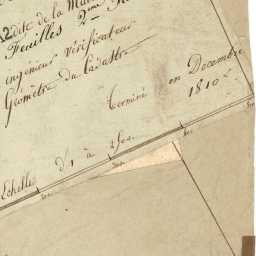 A2 dite de la
Feuilles 2me
ingénieur vérificateur
Géomètre du Cadastre
Terminé en Décembre
1810
Echelle d'1 à